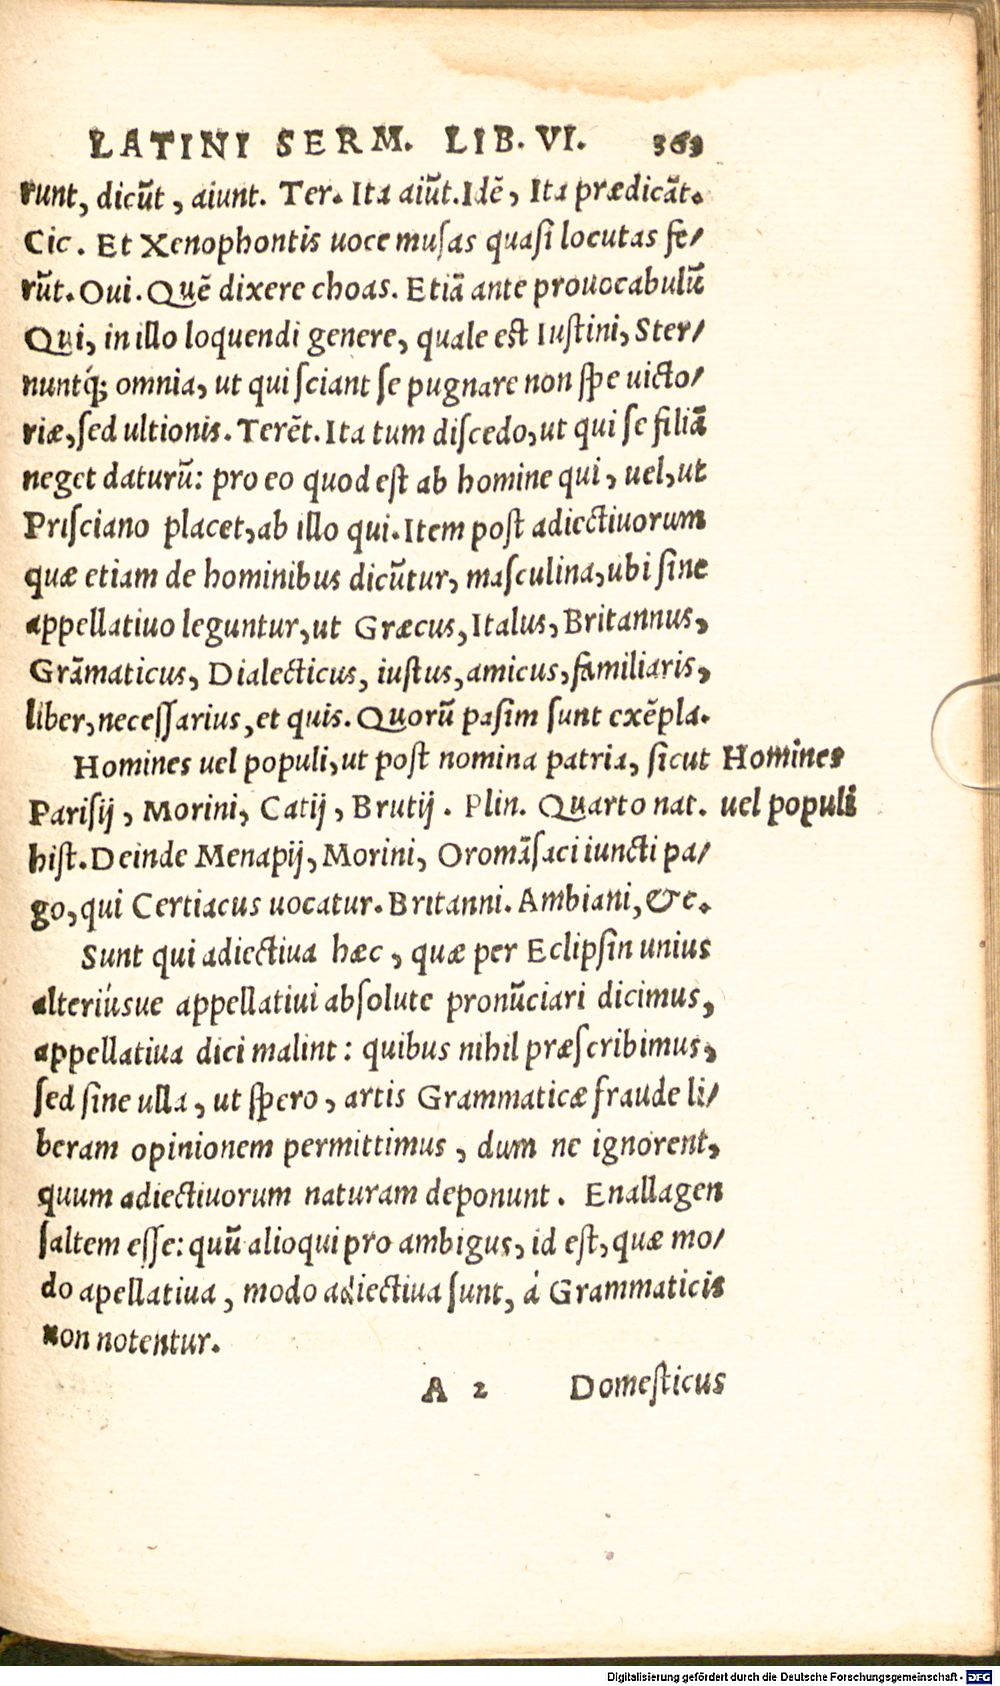 LATINI SERM. LIB. VI. 363
runt, dicũt, aiunt. Ter. Ita aiũt. Idẽ, Ita prædicãt.
Cic. Et Xenophontis uoce muſas quaſi locutas fe/
rũt. Oui. Quẽ dixere choas. Etiã ante prouocabulũ
Qui, in illo loquendi genere, quale eſt Iuſtini, Ster/
nuntq́; omnia, ut qui ſciant ſe pugnare non ſpe uicto/
riæ, ſed ultionis. Terẽt. Ita tum diſcedo, ut qui ſe filiã
neget daturũ: pro eo quod eſt ab homine qui, uel, ut
Priſciano placet, ab illo qui. Item poſt adiectiuorum
quæ etiam de hominibus dicũtur, maſculina, ubi ſine
appellatiuo leguntur, ut Græcus, Italus, Britannus,
Grãmaticus, Dialecticus, iuſtus, amicus, familiaris,
liber, neceſſarius, et quis. Quorũ paſim ſunt exẽpla.
Homines uel populi, ut poſt nomina patria, ſicut Homines
Pariſij, Morini, Catij, Brutij. Plin. Quarto nat. uel populi
hiſt. Deinde Menapij, Morini, Oromãſaci iuncti pa/
go, qui Certiacus uocatur. Britanni. Ambiani, &c.
Sunt qui adiectiua hæc, quæ per Eclipſin unius
alteriúsue appellatiui abſolute pronũciari dicimus,
appellatiua dici malint: quibus nihil præſcribimus,
ſed ſine ulla, ut ſpero, artis Grammaticæ fraude li/
beram opinionem permittimus, dum ne ignorent,
quum adiectiuorum naturam deponunt. Enallagen
ſaltem eſſe: quũ alioqui pro ambigus, id eſt, quæ mo/
do apellatiua, modo adiectiua ſunt, á Grammaticis
non notentur.
A 2 Domeſticus
Digitalisierung gefördert durch die Deutsche Forschungsgemeinschaft - DFG